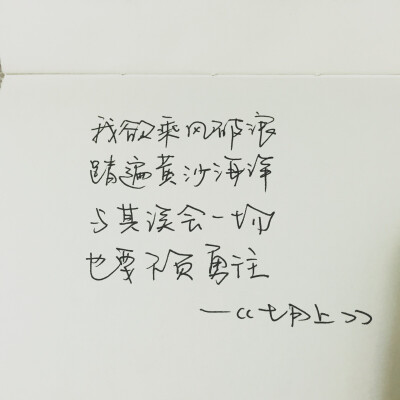 我欲乘风破浪
踏遍黄沙海洋
与其误会一场
也要不负勇往
—《七月上》